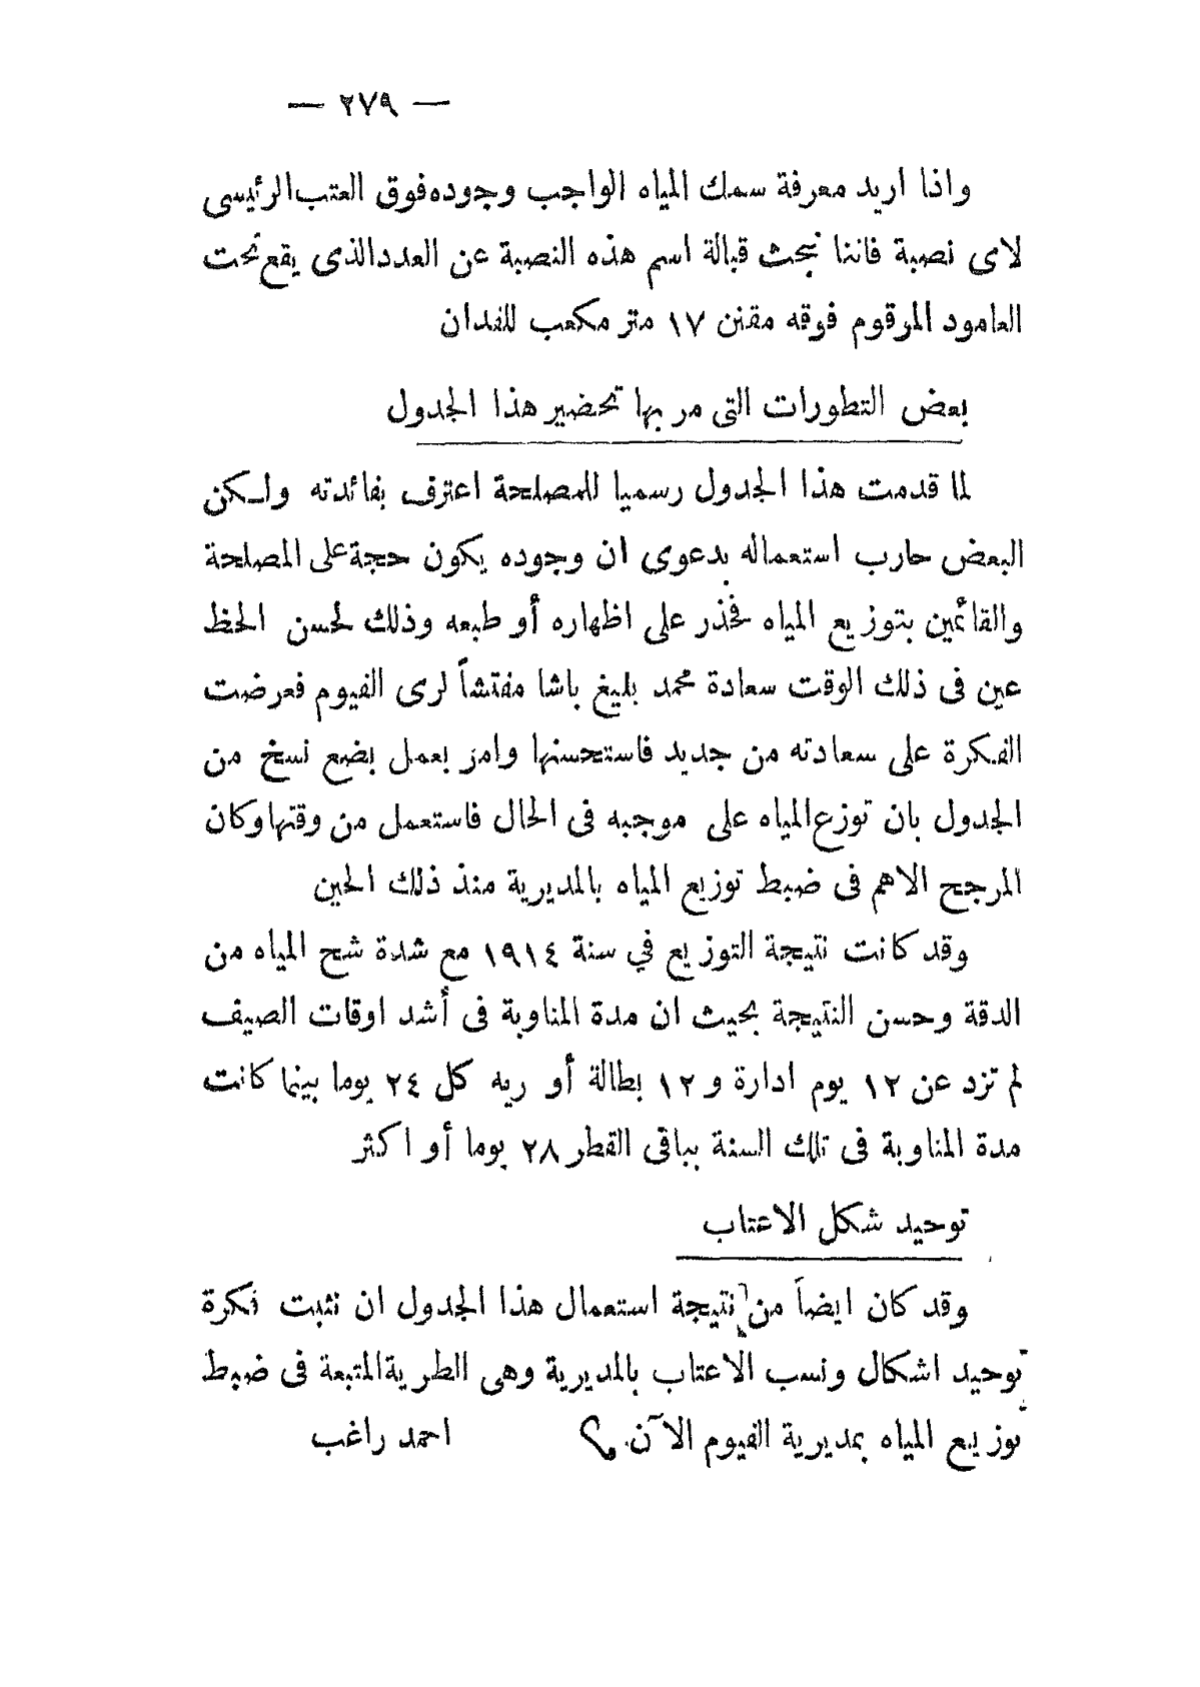 — ٢٧٩ —
واذا اريد معرفة سمك المياه الواجب وجوده فوق العتب الرئيسى
لاى نصبة فاننا نبحث قبالة اسم هذه النصبة عن العدد الذى يقع تحت
العامود المرقوم فوقه مقنن ١٧ متر مكعب للفدان
بعض التطورات التى مر بها تحضير هذا الجدول
لما قدمت هذا الجدول رسميا للمصلحة اعترف بفائدته ولكن
البعض حارب استعماله بدعوى ان وجوده يكون حجة على المصلحة
والقائمين بتوزيع المياه فحذر على اظهاره أو طبعه وذلك لحسن الحظ
عين فى ذلك الوقت سعادة محمد بليغ باشا مفتشاً لرى الفيوم فعرضت
الفكرة على سعادته من جديد فاستحسنها وامر بعمل بضع نسخ من
الجدول بان توزع المياه على موجبه فى الحال فاستعمل من وقتها وكان
المرجح الاهم فى ضبط توزيع المياه بالمديرية منذ ذلك الحين
وقد كانت نتيجة التوزيع في سنة ١٩١٤ مع شدة شح المياه من
الدقة وحسن النتيجة بحيث ان مدة المناوبة فى أشد اوقات الصيف
لم تزد عن ١٢ يوم ادارة و ١٢ بطالة أو ريه كل ٢٤ يوما بينما كانت
مدة المناوبة فى تلك السنة بباقى القطر ٢٨ يوما أو اكثر
توحيد شكل الاعتاب
وقد كان ايضاً من نتيجة استعمال هذا الجدول ان نثبت فكرة
توحيد اشكال ونسب الاعتاب بالمديرية وهى الطرية المتبعة فى ضبط
توزيع المياه بمديرية الفيوم الآن. احمد راغب